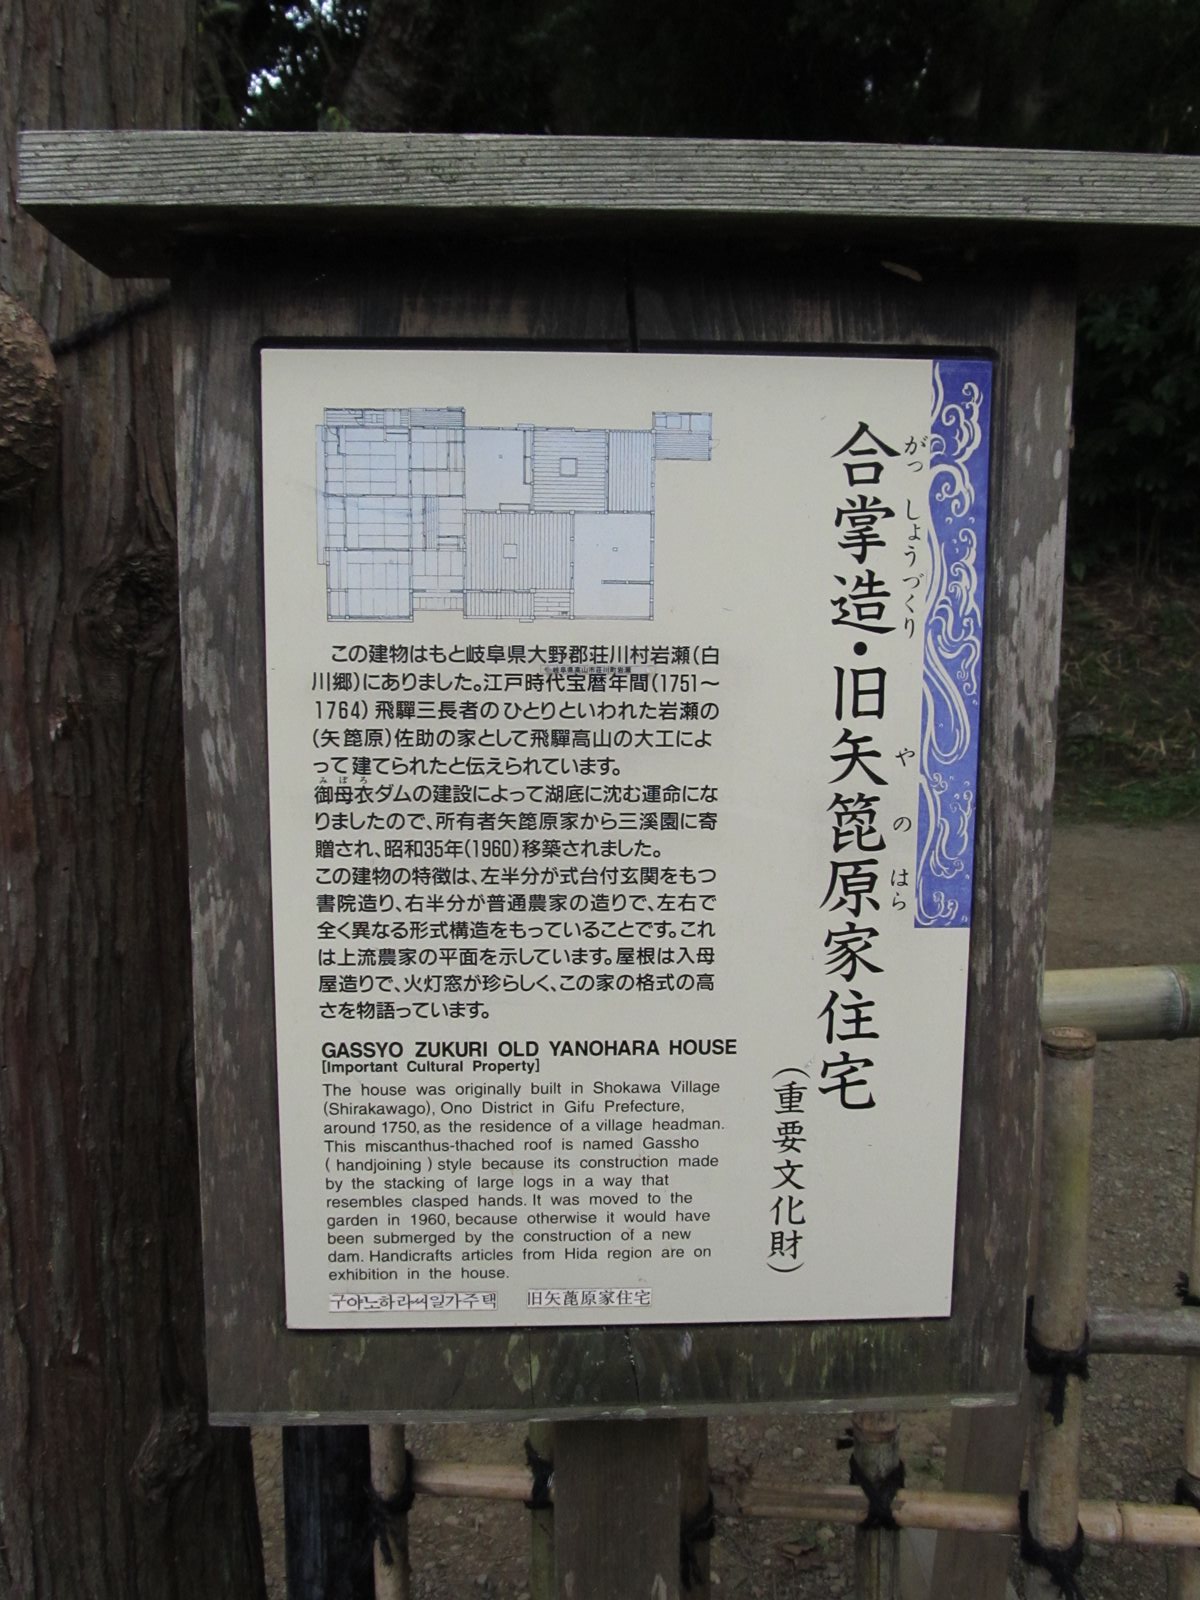 合掌造・旧矢箆原家住宅
がっしょうづくり
やのはら
(重要文化財)
この建物はもと岐阜県大野郡荘川村岩瀬(白
岐阜県高山市荘川町岩瀬
川郷)にありました。江戸時代宝暦年間(1751〜
1764)飛驒三長者のひとりといわれた岩瀬の
(矢箆原)佐助の家として飛驒高山の大工によ
って建てられたと伝えられています。
みぼろ
御母衣ダムの建設によって湖底に沈む運命にな
りましたので、所有者矢箆原家から三溪園に寄
贈され、昭和35年(1960)移築されました。
この建物の特徴は、左半分が式台付玄関をもつ
書院造り、右半分が普通農家の造りで、左右で
全く異なる形式構造をもっていることです。これ
は上流農家の平面を示しています。屋根は入母
屋造りで、火灯窓が珍らしく、この家の格式の高
さを物語っています。
GASSYO ZUKURI OLD YANOHARA HOUSE
[Important Cultural Property]
The house was originally built in Shokawa Village
(Shirakawago), Ono District in Gifu Prefecture,
around 1750, as the residence of a village headman.
This miscanthus-thached roof is named Gassho
(handjoining) style because its construction made
by the stacking of large logs in a way that
resembles clasped hands. It was moved to the
garden in 1960, because otherwise it would have
been submerged by the construction of a new
dam. Handicrafts articles from Hida region are on
exhibition in the house.
구야노하라씨일가주택
旧矢蓖原家住宅